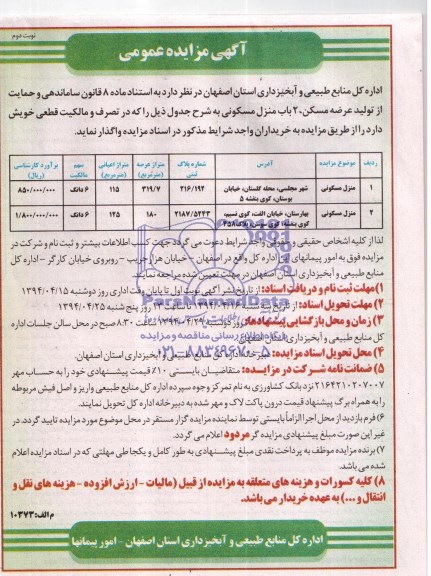 نوبت دوم
آگهی مزایده عمومی
اداره کل منابع طبیعی و آبخیزداری استان اصفهان در نظر دارد به استناد ماده ۸ قانون ساماندهی و حمایت
از تولید عرضه مسکن، ۲ باب منزل مسکونی به شرح جدول ذیل را که در تصرف و مالکیت قطعی خویش
دارد را از طریق مزایده به خریداران واجد شرایط مذکور در اسناد مزایده واگذار نماید.
ردیف موضوع مزایده آدرس شماره پلاک ثبتی متراژ عرصه (مترمربع) متراژ اعیانی (مترمربع) سهم مالکیت برآورد کارشناسی (ریال)
۱ منزل مسکونی شهر مجلسی، محله گلستان، خیابان بوستان، کوی بنفشه ۵ ۳۱۶/۱۹۲ ۳۱۹/۷ ۱۱۵ ۶ دانگ ۸۵۰/۰۰۰/۰۰۰
۲ منزل مسکونی بهارستان، خیابان الفت، کوی نسیم، کوی بنفشه، کوی سوسن، پلاک ۳۵۸ ۲۱۸۷/۵۲۴۳ ۱۸۰ ۱۲۵ ۶ دانگ ۱/۸۰۰/۰۰۰/۰۰۰
لذا از کلیه اشخاص حقیقی و حقوقی واجد شرایط دعوت می گردد جهت کسب اطلاعات بیشتر و ثبت نام و شرکت در
مزایده فوق به امور پیمانهای این اداره کل واقع در اصفهان - خیابان هزار جریب - روبروی خیابان کارگر - اداره کل
منابع طبیعی و آبخیزداری استان اصفهان در مهلت تعیین شده مراجعه نمایند.
۱) مهلت ثبت نام و دریافت اسناد: از تاریخ نشر آگهی نوبت اول تا پایان وقت اداری روز دوشنبه ۱۳۹۴/۰۴/۱۵
۲) مهلت تحویل اسناد: از تاریخ سه شنبه تا ساعت ۱۴ روز پنج شنبه ۱۳۹۴/۰۴/۲۵
۳) زمان و محل بازگشایی پیشنهادها: روز دوشنبه ساعت ۸:۳۰ صبح در محل سالن جلسات اداره
کل منابع طبیعی و آبخیزداری استان اصفهان
۴) محل تحویل اسناد مزایده: دبیرخانه اداره کل منابع طبیعی و آبخیزداری استان اصفهان.
۵) ضمانت نامه شرکت در مزایده: متقاضیان بایستی ۱۰٪ قیمت پیشنهادی خود را به حساب مهر
۲۱۶۴۲۱۰۲۰۷۰۰۷ نزد بانک کشاورزی به نام تمرکز وجوه سپرده اداره کل منابع طبیعی واریز و اصل فیش مربوطه
را به همراه برگ پیشنهاد قیمت درون پاکت لاک و مهر شده به دبیرخانه اداره کل تحویل نمایند.
۶) فرم بازدید از محل اجرا الزاماً بایستی توسط نماینده مزایده گزار مستقر در محل موضوع مورد مزایده تایید گردد. در
غیر این صورت مبلغ پیشنهادی مزایده گر مردود اعلام می گردد.
۷) برنده مزایده موظف به پرداخت نقدی مبلغ پیشنهادی به طور کامل و یکجا طی مهلتی که در اسناد مزایده اعلام
شده می باشد.
۸) کلیه کسورات و هزینه های متعلقه به مزایده از قبیل (مالیات - ارزش افزوده - هزینه های نقل و
انتقال و ...) به عهده خریدار می باشد.
م الف: ۱۰۳۷۳
اداره کل منابع طبیعی و آبخیزداری استان اصفهان - امور پیمانها
ParaNamadData
پایگاه اطلاع رسانی مناقصه و مزایده
۰۲۱-۸۸۳۴۹۶۷۰-۵